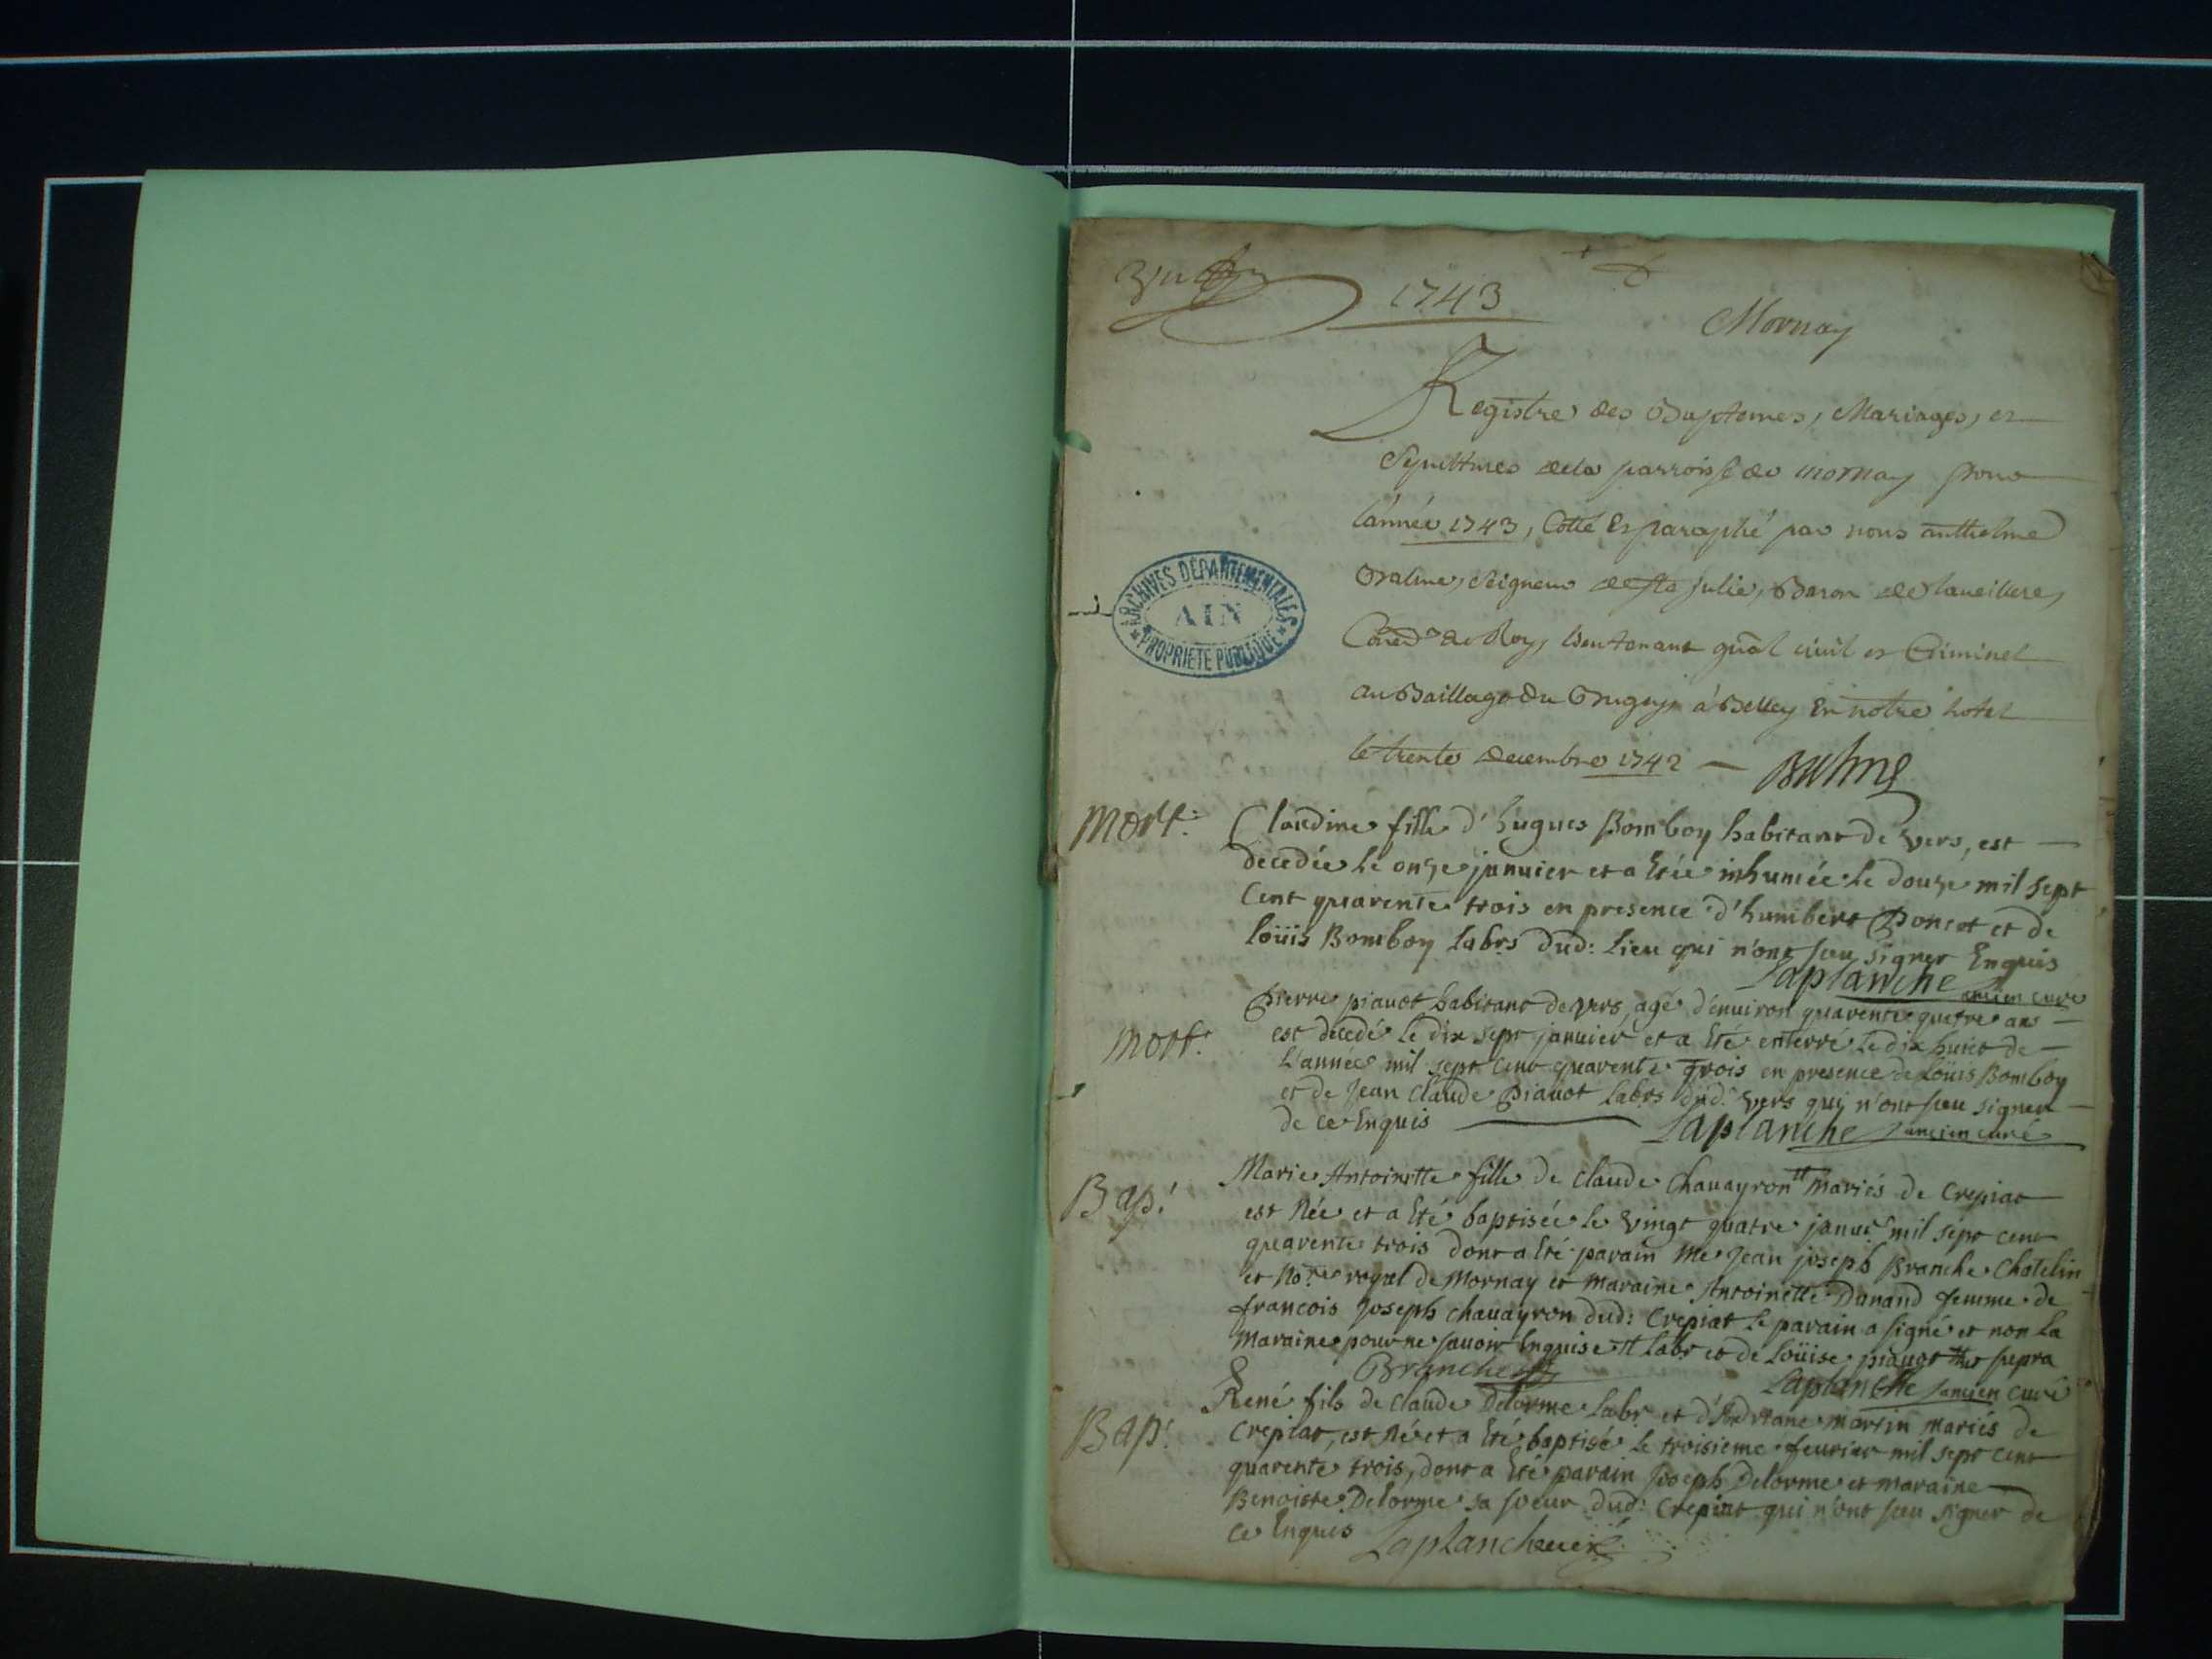 1743
Mornay
Registre des Baptemes, Mariages, et
Sepultures de la parroisse de mornay pour
l'année 1743, Cotté Et paraphé par nous anthelme
Balme, Seigneur de Ste Julie, Baron de
du Roy, lieutenant gñal civil et Criminel
au Baillage du Bugey à Belley En notre hotel
le trente decembre 1742 — Balme
ARCHIVES DÉPARTEMENTALES
AIN
PROPRIÉTÉ PUBLIQUE
Mort: Claudine fille d'hugues Bomboy habitant de vers, est —
decedée le onze januier et a Etée inhumée le douze mil sept
Cent quarente trois en presence d'humbert Poncet et de
loüis Bomboy labrs dud: lieu qui n'ont sçeu signer Enquis
Laplanche ancien curé
Mort: pierre piauot habitant de vers, agé d'enuiron quarente quatre ans —
est decedé le dix sept januier et a Eté enterré le dix huict de —
L'année mil sept cent quarente trois en presence de Loüis Bomboy
et de Jean Claude Piauot labrs dud: vers qui n'ont sçeu signer —
de ce Enquis — Laplanche ancien curé
Bap: Marie Antoinette fille de Claude Chauayron tt mariés de Crepiat
est Née et a Eté baptisée le vingt quatre januier mil sept cent
quarente trois dont a Eté parain Me Jean joseph Branche Chatelin
et No:re royal de Mornay et maraine Antoinette Dunand femme de
francois Joseph chauayron dud: Crepiat le parain a signé et non la
Maraine pour ne sauoir Enquise tt labr et de Loüise piauot supra
Branche Laplanche ancien curé
Bap: René fils de Claude Delorme labr et d'Andreane martin mariés de
Crepiat, est Né et a Eté baptisé le troisieme feurier mil sept cent
quarente trois, dont a Eté parain Joseph Delorme et maraine —
Benoiste Delorme sa soeur dud: Crepiat qui n'ont sçeu signer de
ce Enquis Laplanche curé